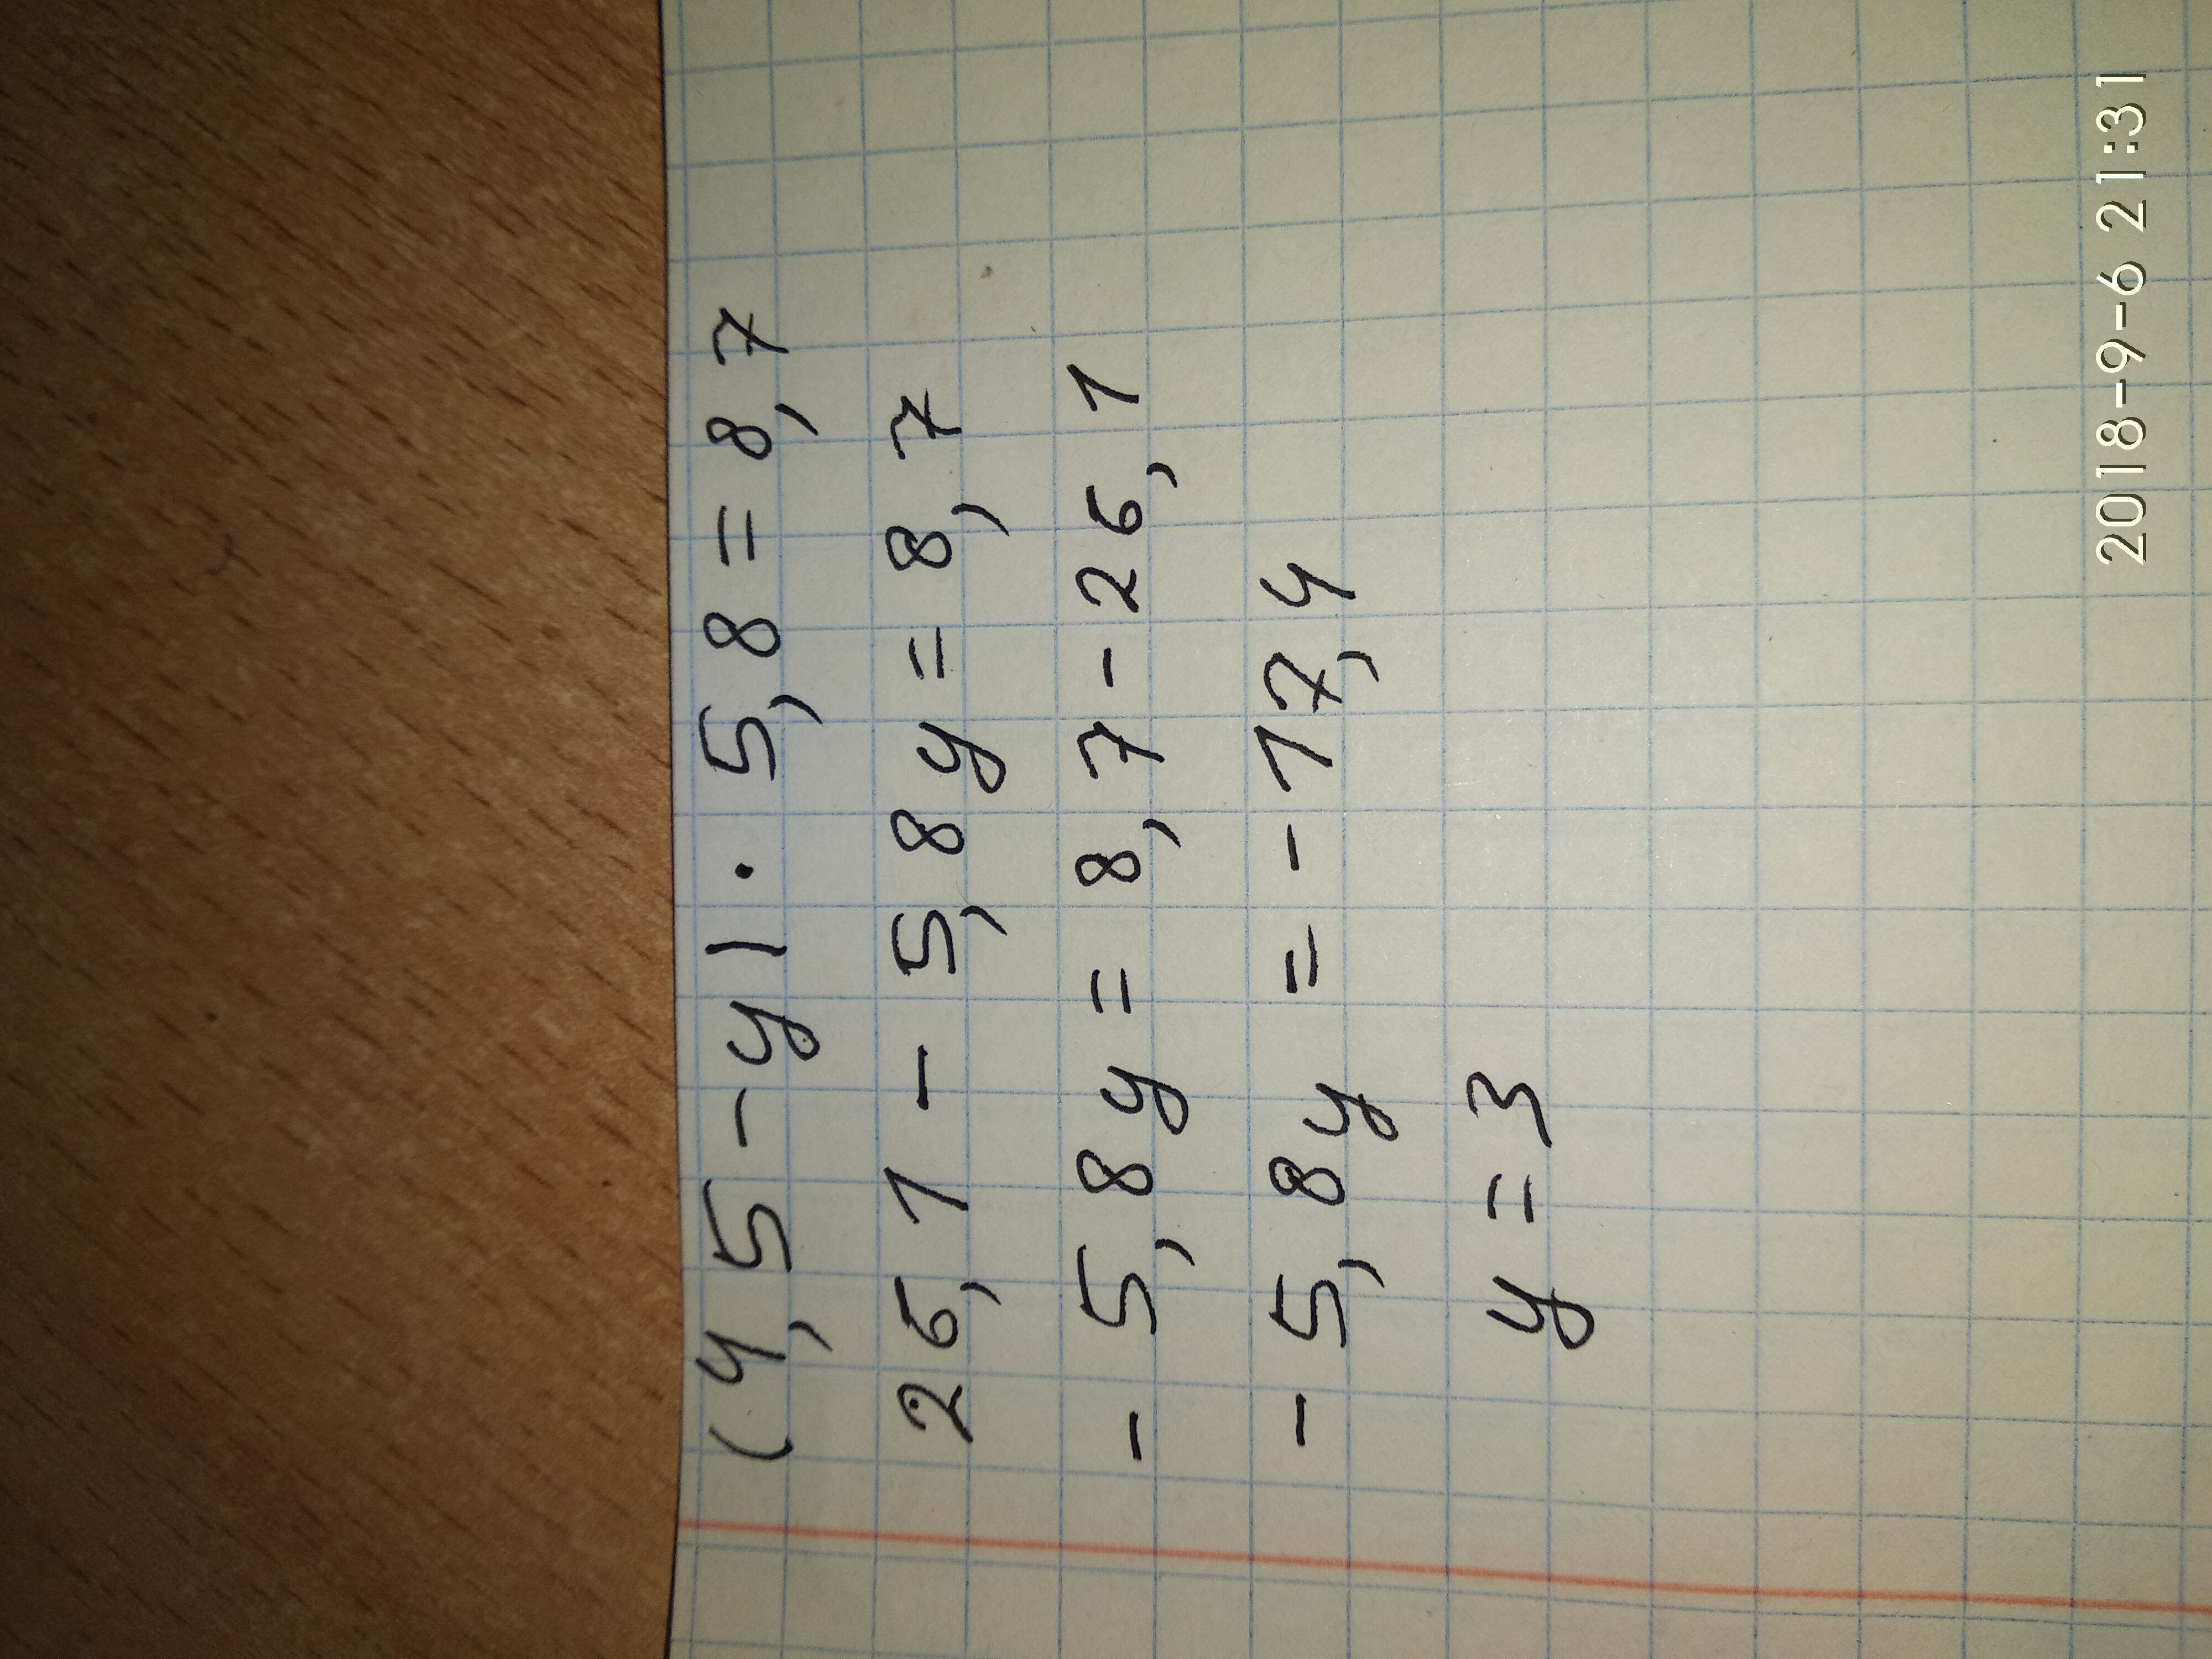 (4,5-y)·5,8=8,7
26,1-5,8y=8,7
-5,8y=8,7-26,1
-5,8y=-17,4
y=3
2018-9-6 21:31